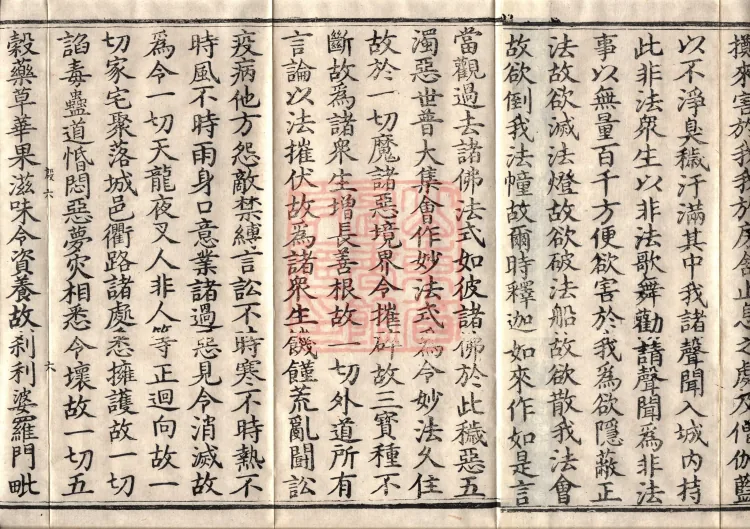 擲來害於我我於房舍止息之處及僧伽藍
以不淨臭穢汙滿其中我諸聲聞入城內持
此非法衆生以非法歌舞勸請聲聞爲非法
事以無量百千方便欲害於我爲欲隱蔽正
法故欲滅法燈故欲破法船故欲散我法會
故欲倒我法幢故爾時釋迦如來作如是言
當觀過去諸佛法式如彼諸佛於此穢惡五
濁惡世普大集會作妙法式爲令妙法久住
故於一切魔諸惡境界令摧碎故三寶種不
斷故爲諸衆生增長善根故一切外道所有
言論以法摧伏故爲諸衆生饑饉荒亂鬪訟
疫病他方怨敵禁縛言訟不時寒不時熱不
時風不時雨身口意業諸過惡見令消滅故
爲令一切天龍夜叉人非人等正迴向故一
切家宅聚落城邑衢路諸處悉擁護故一切
諂毒蠱道惱悶惡夢灾相悉令壞故一切五
穀藥草華果滋味令資養故刹利婆羅門毗